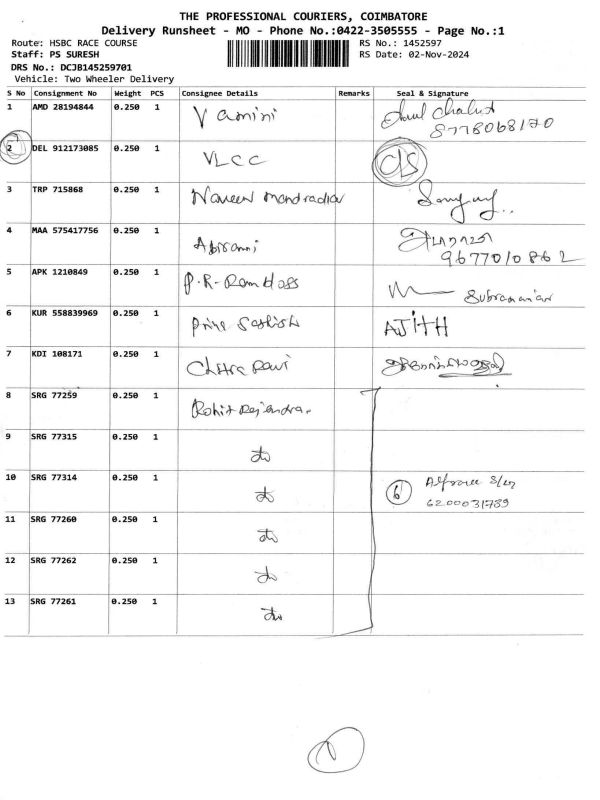 THE PROFESSIONAL COURIERS, COIMBATORE
Delivery Runsheet - MO - Phone No.:0422-3505555 - Page No.:1
Route: HSBC RACE COURSE RS No.: 1452597
Staff: PS SURESH RS Date: 02-Nov-2024
DRS No.: DCJB145259701
Vehicle: Two Wheeler Delivery
S No Consignment No Weight PCS Consignee Details Remarks Seal & Signature
1 AMD 28194844 0.250 1 Vamini
8778068170
2 DEL 912173085 0.250 1 VLCC C/S
3 TRP 715868 0.250 1 Naveen
4 MAA 575417756 0.250 1 Abirami
9677010862
5 APK 1210849 0.250 1 P.R. Ramdoss Subramanian
6 KUR 558839969 0.250 1 AJITH
7 KDI 108171 0.250 1 Chitra
8 SRG 77259 0.250 1 Rohit Rajendra.
9 SRG 77315 0.250 1 do
10 SRG 77314 0.250 1 do 6
6200031789
11 SRG 77260 0.250 1 do
12 SRG 77262 0.250 1 do
13 SRG 77261 0.250 1 do